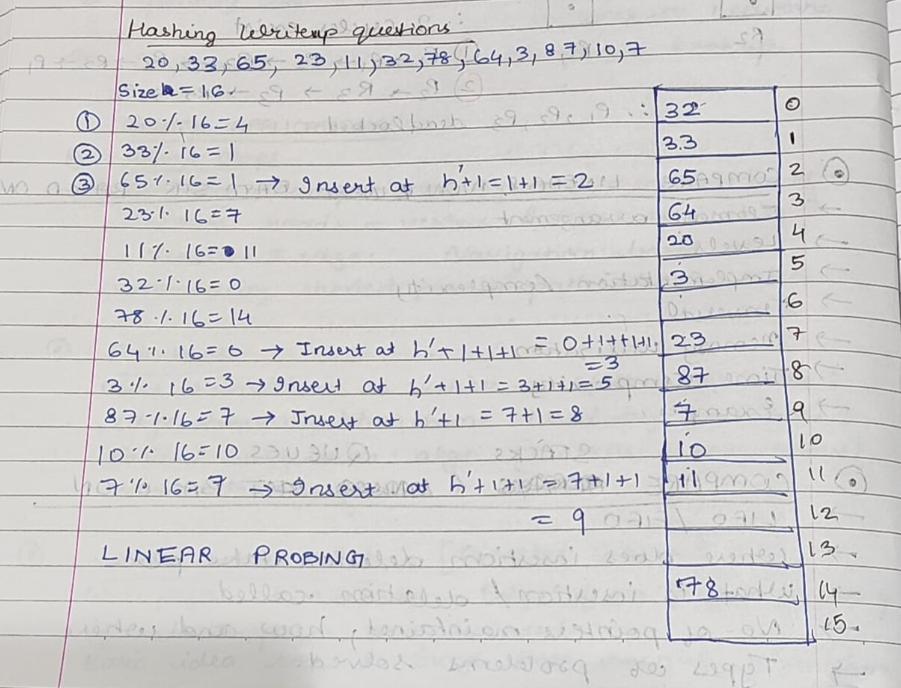 Hashing Writeup questions
20, 33, 65, 23, 11, 32, 78, 64, 3, 87, 10, 7
Size = 16
① 20 % 16 = 4
② 33 % 16 = 1
③ 65 % 16 = 1 → Insert at h'+1 = 1+1 = 2
23 % 16 = 7
11 % 16 = 11
32 % 16 = 0
78 % 16 = 14
64 % 16 = 0 → Insert at h'+1+1+1 = 0+1+1+1
= 3
3 % 16 = 3 → Insert at h'+1+1 = 3+1+1 = 5
87 % 16 = 7 → Insert at h'+1 = 7+1 = 8
10 % 16 = 10
7 % 16 = 7 → Insert at h'+1+1 = 7+1+1
= 9
LINEAR PROBING
32 0
33 1
65 2
64 3
20 4
3 5
6
23 7
87 8
7 9
10 10
11 11
12
13
78 14
15